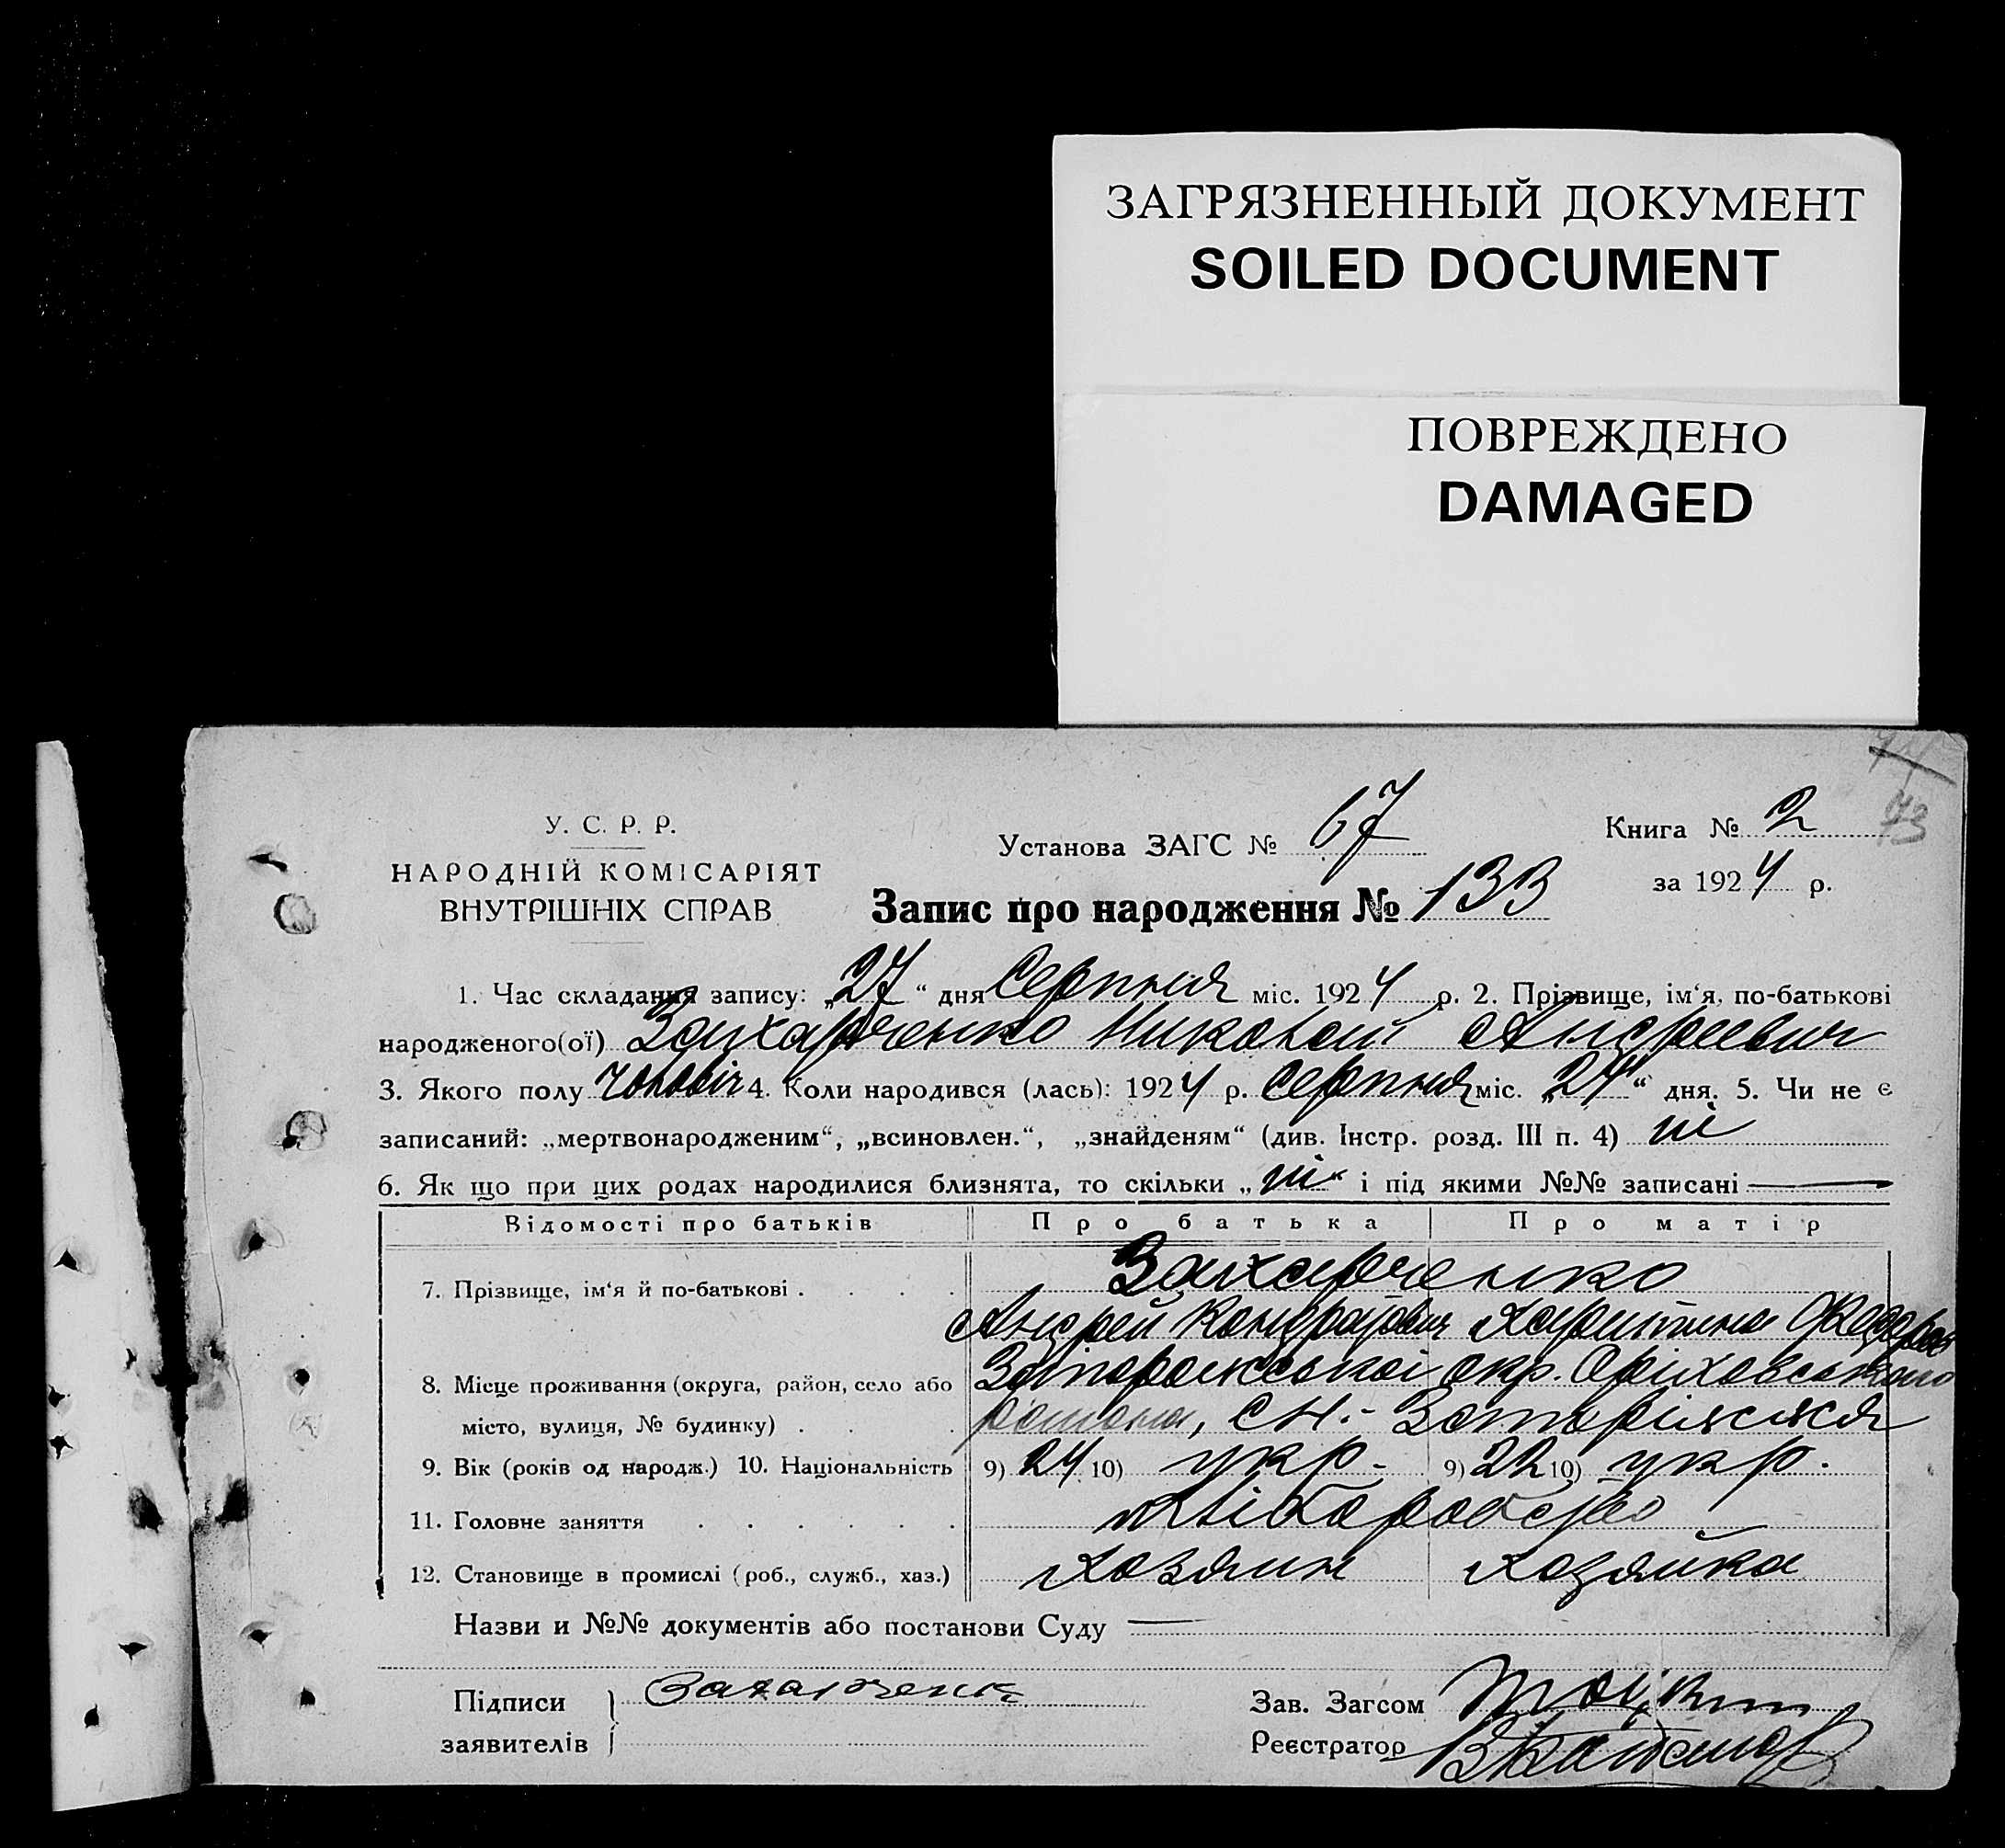 ЗАГРЯЗНЕННЫЙ ДОКУМЕНТ
SOILED DOCUMENT
ПОВРЕЖДЕНО
DAMAGED
73
У. С. Р. Р.
НАРОДНІЙ КОМІСАРІЯТ
ВНУТРІШНІХ СПРАВ
Установа ЗАГС № 67
Книга № 2
за 1924 р.
Запис про народження № 133
1. Час складання запису: „27“ дня Серпня міс. 1924 р. 2. Прізвище, ім‘я, по-батькові
народженого(ої) Захарченко Николай Андреевич
3. Якого полу чоловіч 4. Коли народився (лась): 1924 р. Серпня міс. „24“ дня. 5. Чи не є
записаний: „мертвонародженим“, „всиновлен.“, „знайденям“ (див. Інстр. розд. III п. 4) ні
6. Як що при цих родах народилися близнята, то скільки „ні“ і під якими №№ записані —
Відомості про батьків Про батька Про матір
7. Прізвище, ім‘я й по-батькові . . . . Захарченко
Андрей Кондратович Харитина
8. Місце проживання (округа, район, село або Запорожської окр. Оріховського
місто, вулиця, № будинку) . . . району, с. Н.-
9. Вік (років од народж.) 10. Національність 9) 24 10) укр. 9) 22 10) укр.
11. Головне заняття . . . . . . хліборобство
12. Становище в промислі (роб., служб., хаз.) Хозяин Хозяйка
Назви и №№ документів або постанови Суду —
Підписи Захарченко Зав. Загсом
заявителів Реєстратор